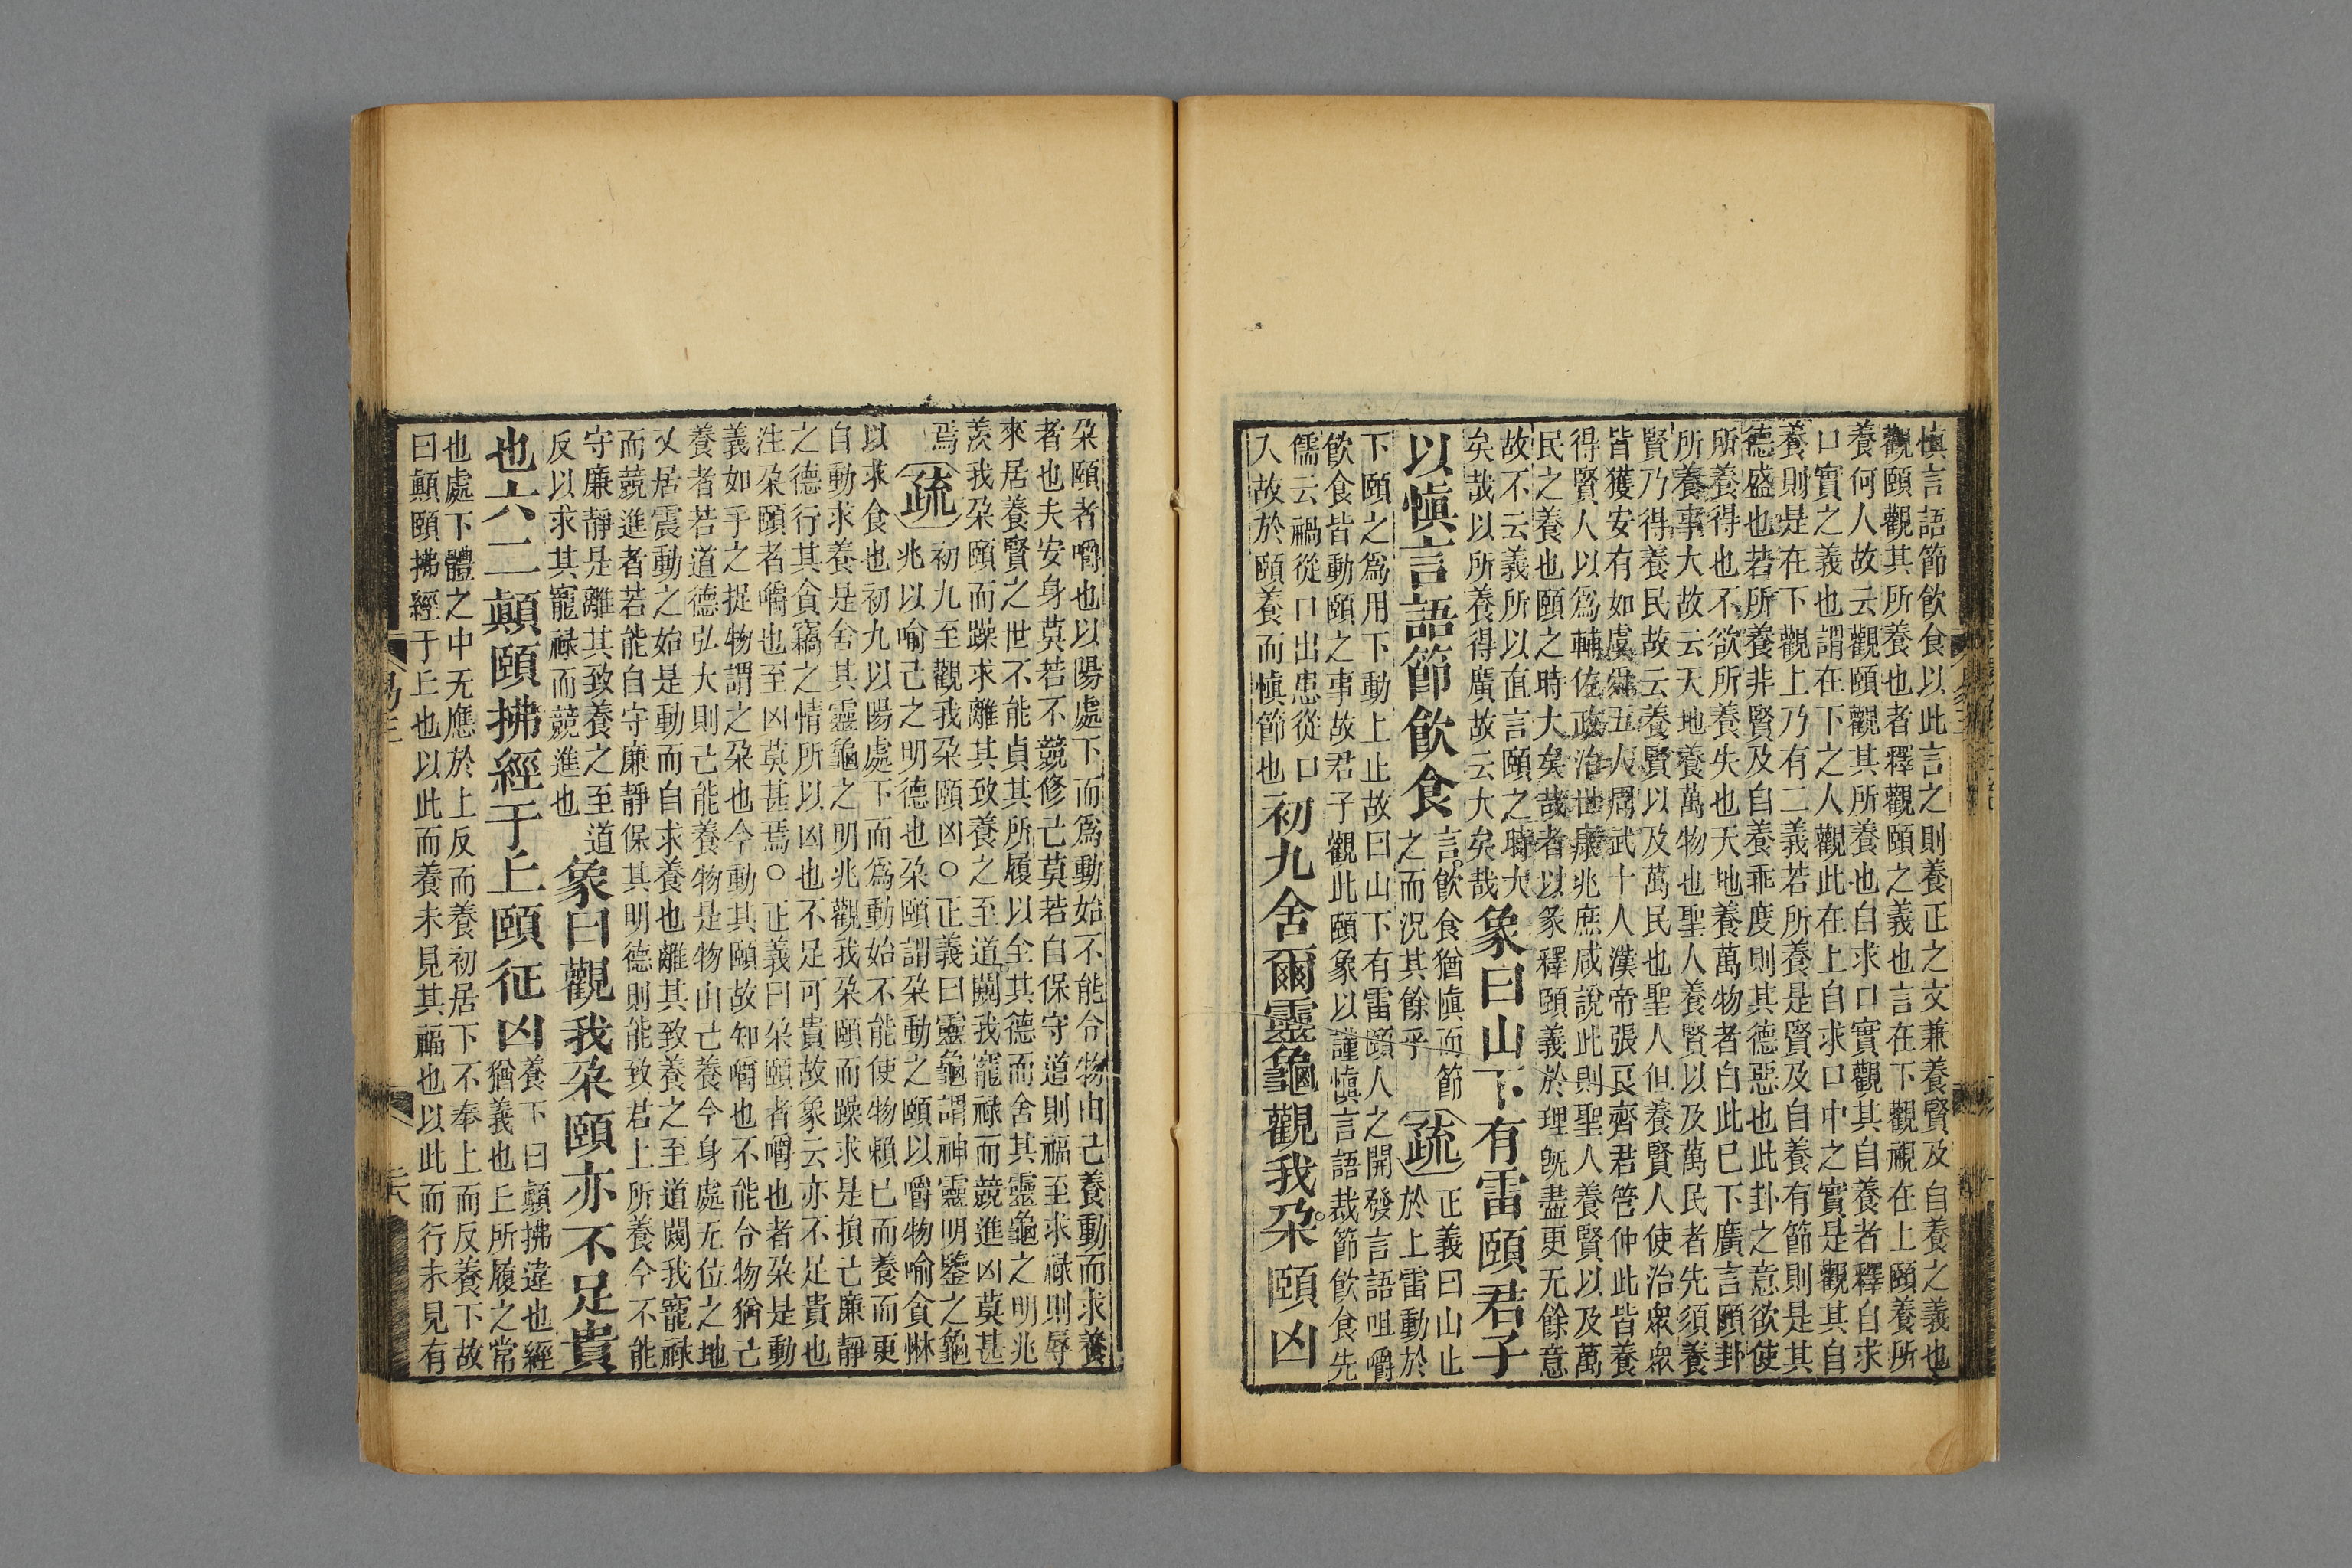 慎言語節飲食以此言之則養正之文兼養賢及自養之義也
觀頤觀其所養也者釋觀頤之義也言在下觀視在上頤養所
養何人故云觀頤觀其所養也自求口實觀其自養者釋自求
口實之義也謂在下之人觀此在上自求口中之實是觀其自
養則是在下觀上乃有二義若所養是賢及自養有節則是其
德盛也若所養非賢及自養乖度則其德惡也此卦之意欲使
所養得也不欲所養失也天地養萬物者自此已下廣言頤卦
所養事大故云天地養萬物也聖人養賢以及萬民者先須養
賢乃得養民故云養賢以及萬民也聖人但養賢人使治衆衆
皆獲安有如虞舜五人周武十人漢帝張良齊君管仲此皆養
得賢人以爲輔佐政治世康兆庶咸說此則聖人養賢以及萬
民之養也頤之時大矣哉者以彖釋頤義於理旣盡更无餘意
故不云義所以直言頤之時大
矣哉以所養得廣故云大矣哉
象曰山下有雷頤君子
以慎言語節飲食
言飲食猶慎而節
之而況其餘乎
疏
正義曰山止
於上雷動於
下頤之爲用下動上止故曰山下有雷頤人之開發言語咀嚼
飲食皆動頤之事故君子觀此頤象以謹慎言語裁節飲食先
儒云禍從口出患從口
入故於頤養而慎節也
初九舍爾靈龜觀我朶頤凶
朶頤者嚼也以陽處下而爲動始不能令物由己養動而求養
者也夫安身莫若不競修己莫若自保守道則福至求祿則辱
來居養賢之世不能貞其所履以全其德而舍其靈龜之明兆
羨我朶頤而躁求離其致養之至道闚我寵祿而競進凶莫甚
焉
疏
初九至觀我朶頤凶○正義曰靈龜謂神靈明鑒之龜
兆以喻己之明德也朶頤謂朶動之頤以嚼物喻貪惏
以求食也初九以陽處下而爲動始不能使物賴己而養而更
自動求養是舍其靈龜之明兆觀我朶頤而躁求是損己廉靜
之德行其貪竊之情所以凶也不足可貴故象云亦不足貴也
注朶頤者嚼也至凶莫甚焉○正義曰朶頤者嚼也者朶是動
義如手之捉物謂之朶也今動其頤故知嚼也不能令物猶己
養者若道德弘大則己能養物是物由己養今身處无位之地
又居震動之始是動而自求養也離其致養之至道闚我寵祿
而競進者若能自守廉靜保其明德則能致君上所養今不能
守廉靜是離其致養之至道
反以求其寵祿而競進也
象曰觀我朶頤亦不足貴
也六二顚頤拂經于丘頤征凶
養下曰顚拂違也經
猶義也丘所履之常
也處下體之中无應於上反而養初居下不奉上而反養下故
曰顚頤拂經于丘也以此而養未見其福也以此而行未見有
易三